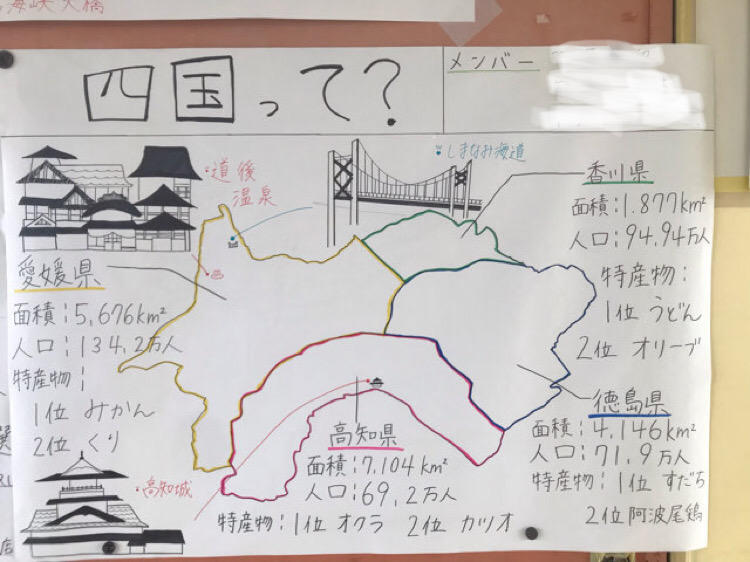 海峡大橋
四国って?
メンバー
・道後
温泉
しまなみ海道
香川県
面積:1.877km²
人口:94.94万人
特産物:
1位 うどん
2位 オリーブ
愛媛県
面積:5,676km²
人口:134,2万人
特産物:
1位 みかん
2位 くり
徳島県
面積:4,146km²
人口:71.9万人
特産物:1位 すだち
2位 阿波尾鶏
高知県
面積:7,104km²
人口:69,2万人
特産物:1位 オクラ 2位 カツオ
・高知城
店